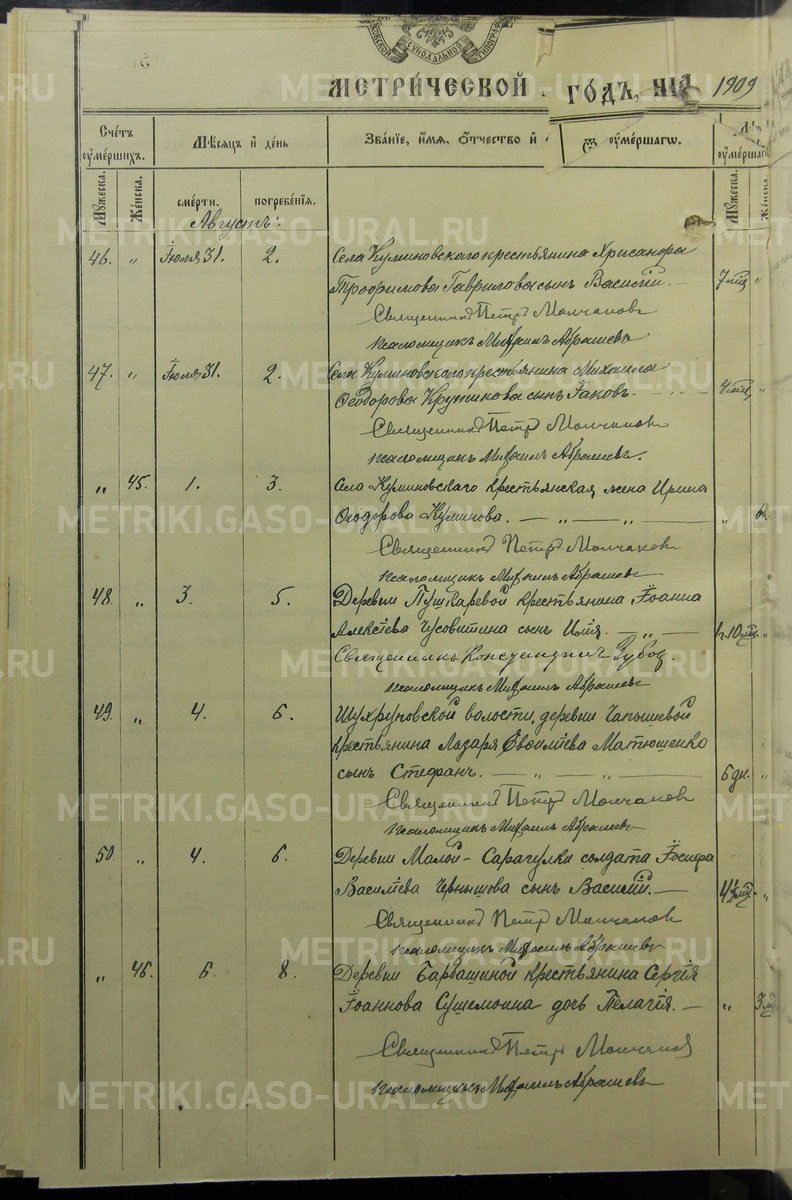 МЕТРИ́ЧЕСКОЙ
ГО́ДЪ,
1909
Сче́тъ ᲂу҆ме́ршихъ.
Мѣ́сяцъ и҆ де́нь
Зва́нїе, и҆́мя, ѻ҆́тчество и҆
ᲂу҆ме́ршагѡ.
ᲂу҆ме́ршагѡ
Мꙋ́жеска.
Же́нска.
сме́рти.
погребе́нїя.
Мꙋ́жеска.
Же́нска
Августъ:
46. „ Іюля 31. 2. Села Куминовскаго крестьянина Хрисанфа
Трофимова Гаврилова сынъ Василій. — 7 мѣ „
Священникъ Петръ Молчановъ
псаломщикъ Михаилъ Абрашевъ
47. „ Іюля 31. 2. Села Куминовскаго крестьянина Михаила
Ѳеодорова сынъ Іаковъ — 4 мѣ „
Священникъ Петръ Молчановъ
псаломщикъ Михаилъ Абрашевъ.
„ 45. 1. 3. Села Куминовскаго крестьянская жена Ирина
Ѳеодорова Куминова. — „ — „ — „
Священникъ Петръ Молчановъ
псаломщикъ Михаилъ Абрашевъ
48. „ 3. 5. Деревни Пушкаревой крестьянина Іоанна
Алексѣева Чусовитина сынъ Илія. — „ — 10 мѣ „
Священникъ Зубовъ.
псаломщикъ Михаилъ Абрашевъ
49. „ 4. 6. Шухруповской волости, деревни Чапышевой
крестьянина Лазаря Матюшенко
сынъ Стефанъ. — „ — „ — 6 дн. „
Священникъ Петръ Молчановъ
псаломщикъ Михаилъ Абрашевъ
50. „ 4. 6. Деревни Малой-Сарагулки солдата Іосифа
Василіева Чернышова сынъ Василій. — 4½ мѣ. „
Священникъ Петръ Молчановъ
псаломщикъ Михаилъ Абрашевъ
„ 46. 6. 8. Деревни Барбашиной крестьянина Сергія
Іоаннова дочь Пелагія. — „ 3
Священникъ Петръ Молчановъ
псаломщикъ Михаилъ Абрашевъ
METRIKI.GASO-URAL.RU